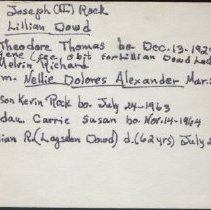 Joseph (III) Rock
Lillian Dowd
Theodore Thomas bo. Dec. 13-192
gene (see obit for Lillian Dowd
Melvin Richard
m. Nellie Dolores Alexander Mar.
son Kevin Rock bo. July 24-1963
dau. Carrie Susan bo. Nov. 14-1964
lian R. (Lagsdon Dowd) d. (62 yrs) July 2